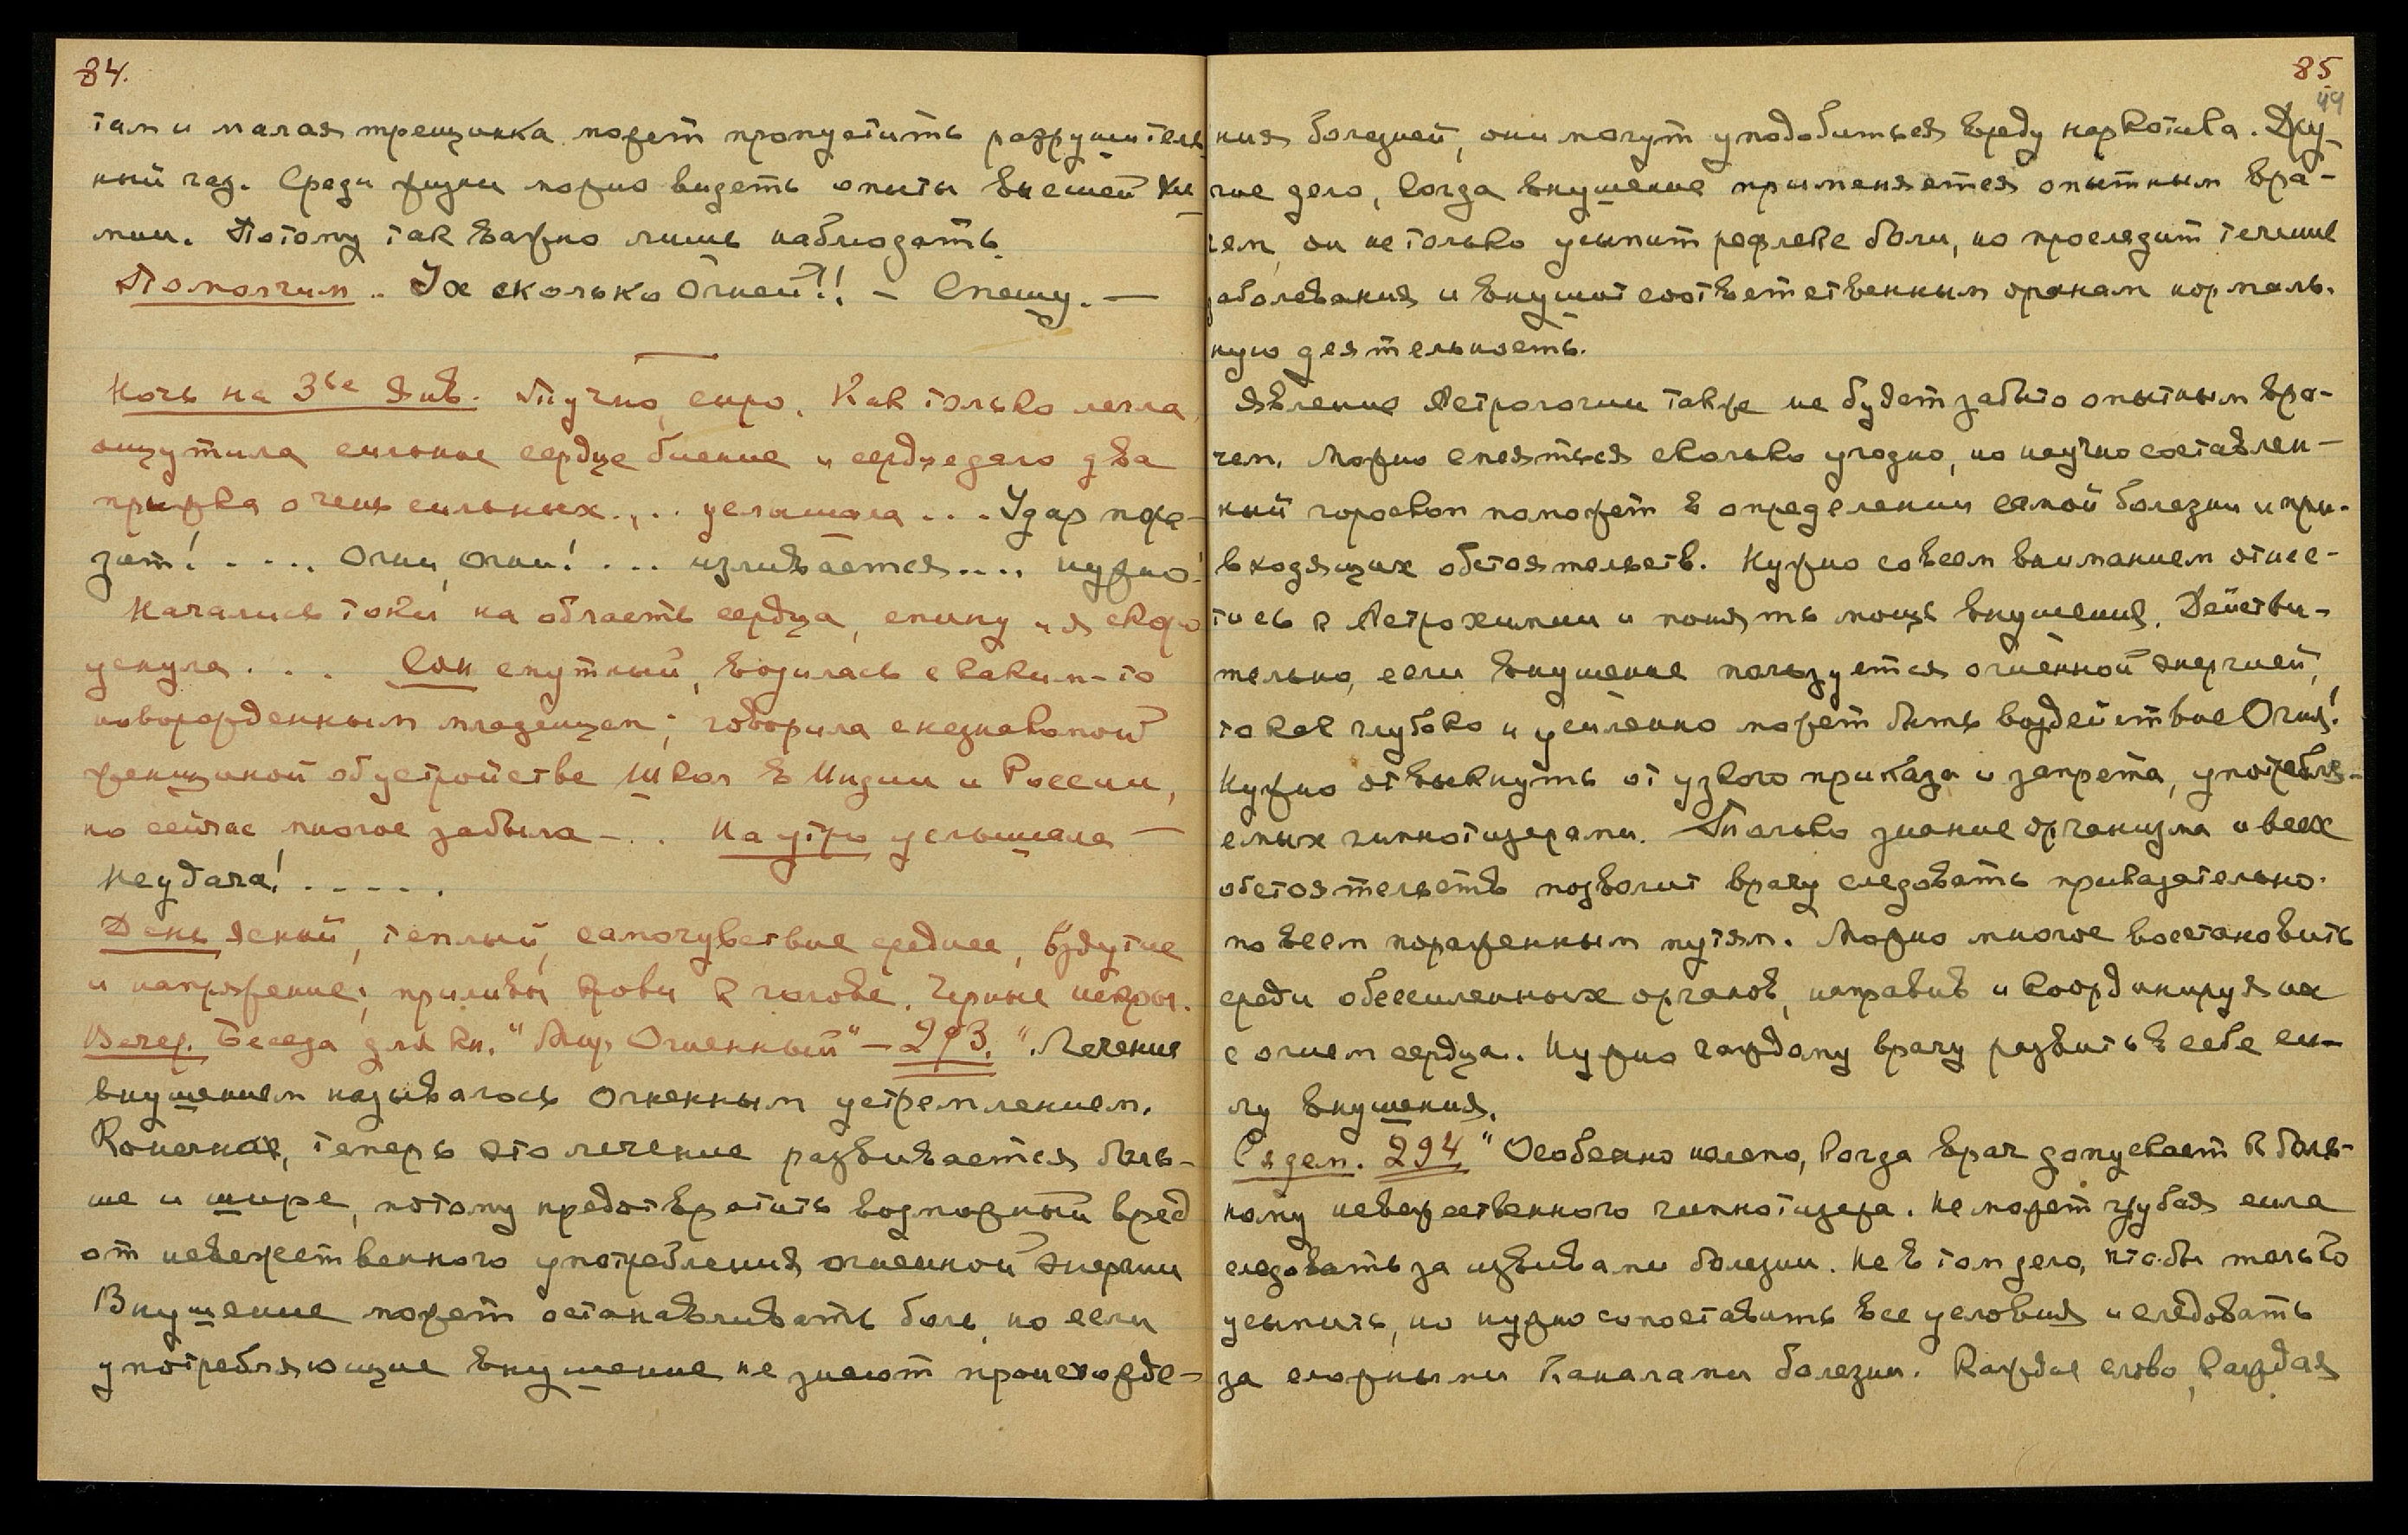 84.
там и малая трещинка может пропустить разрушитель-
ный газ. Среди жизни можно видеть опыты высшей хи-
мии. Потому так важно лишь наблюдать.
Помолчим.. Ух сколько Огней!! – Спешу. —
Ночь на 3ье Янв. Тучно, сыро. Как только легла,
ощутила сильное сердцебиение и сердце дало два
прыжка очень сильных.... услышала ... Удар пока-
зат! ..... Огни, Огни! ... изливается .... нужно!
Начались токи на область сердца, спину и я скоро
уснула. . . . Сон смутный, возилась с каким-то
новорожденным младенцем; говорила с незнакомой
женщиной об устройстве школ в Индии и России,
но сейчас многое забыла – . . На утро услышала —
Неудача! .....
День ясный, теплый, самочувствие среднее, вздутие
и напряжение; приливы крови к голове. Черные искры.
Вечер. Беседа для кн. "Мир Огненный" – 293. "Лечение
внушением называлось Огненным устремлением.
Конечно, теперь это лечение развивается боль-
ше и шире, потому предотвратить возможный вред
от невежественного употребления огненной энергии
Внушение может останавливать боль, но если
употребляющие внушение не знают происхожде-
85
49
ния болезней, они могут уподобиться вреду наркотика. Дру-
гое дело, когда внушение применяется опытным вра-
чем, он не только усыпит рефлекс боли, но проследит течение
заболевания и внушит соответственным органам нормаль-
ную деятельность.
Явление Астрологии также не будет забыто опытным вра-
чем. Можно смеяться сколько угодно, но научно составлен-
ный гороскоп поможет в определении самой болезни и при-
входящих обстоятельств. Нужно со всем вниманием отнес-
тись к Астрохимии и понять мощь внушения. Действи-
тельно, если внушение пользуется огненной энергией,
то как глубоко и усиленно может быть воздействие Огня!
Нужно отвыкнуть от узкого приказа и запрета, употребля-
емых гипнотизерами. Только знание организма и всех
обстоятельств позволит врачу следовать приказательно
по всем пораженным путям. Можно многое восстановить
среди обессиленных органов, направив и координируя их
с огнем сердца. Нужно каждому врачу развить в себе си-
лу внушения.
Садем. 294 "Особенно нелепо, когда врач допускает к боль-
ному невежественного гипнотизера. Не может грубая сила
следовать за извивами болезни. Не в том дело, чтобы только
усыпить, но нужно сопоставить все условия и следовать
за сложными каналами болезни. Каждое слово, каждая